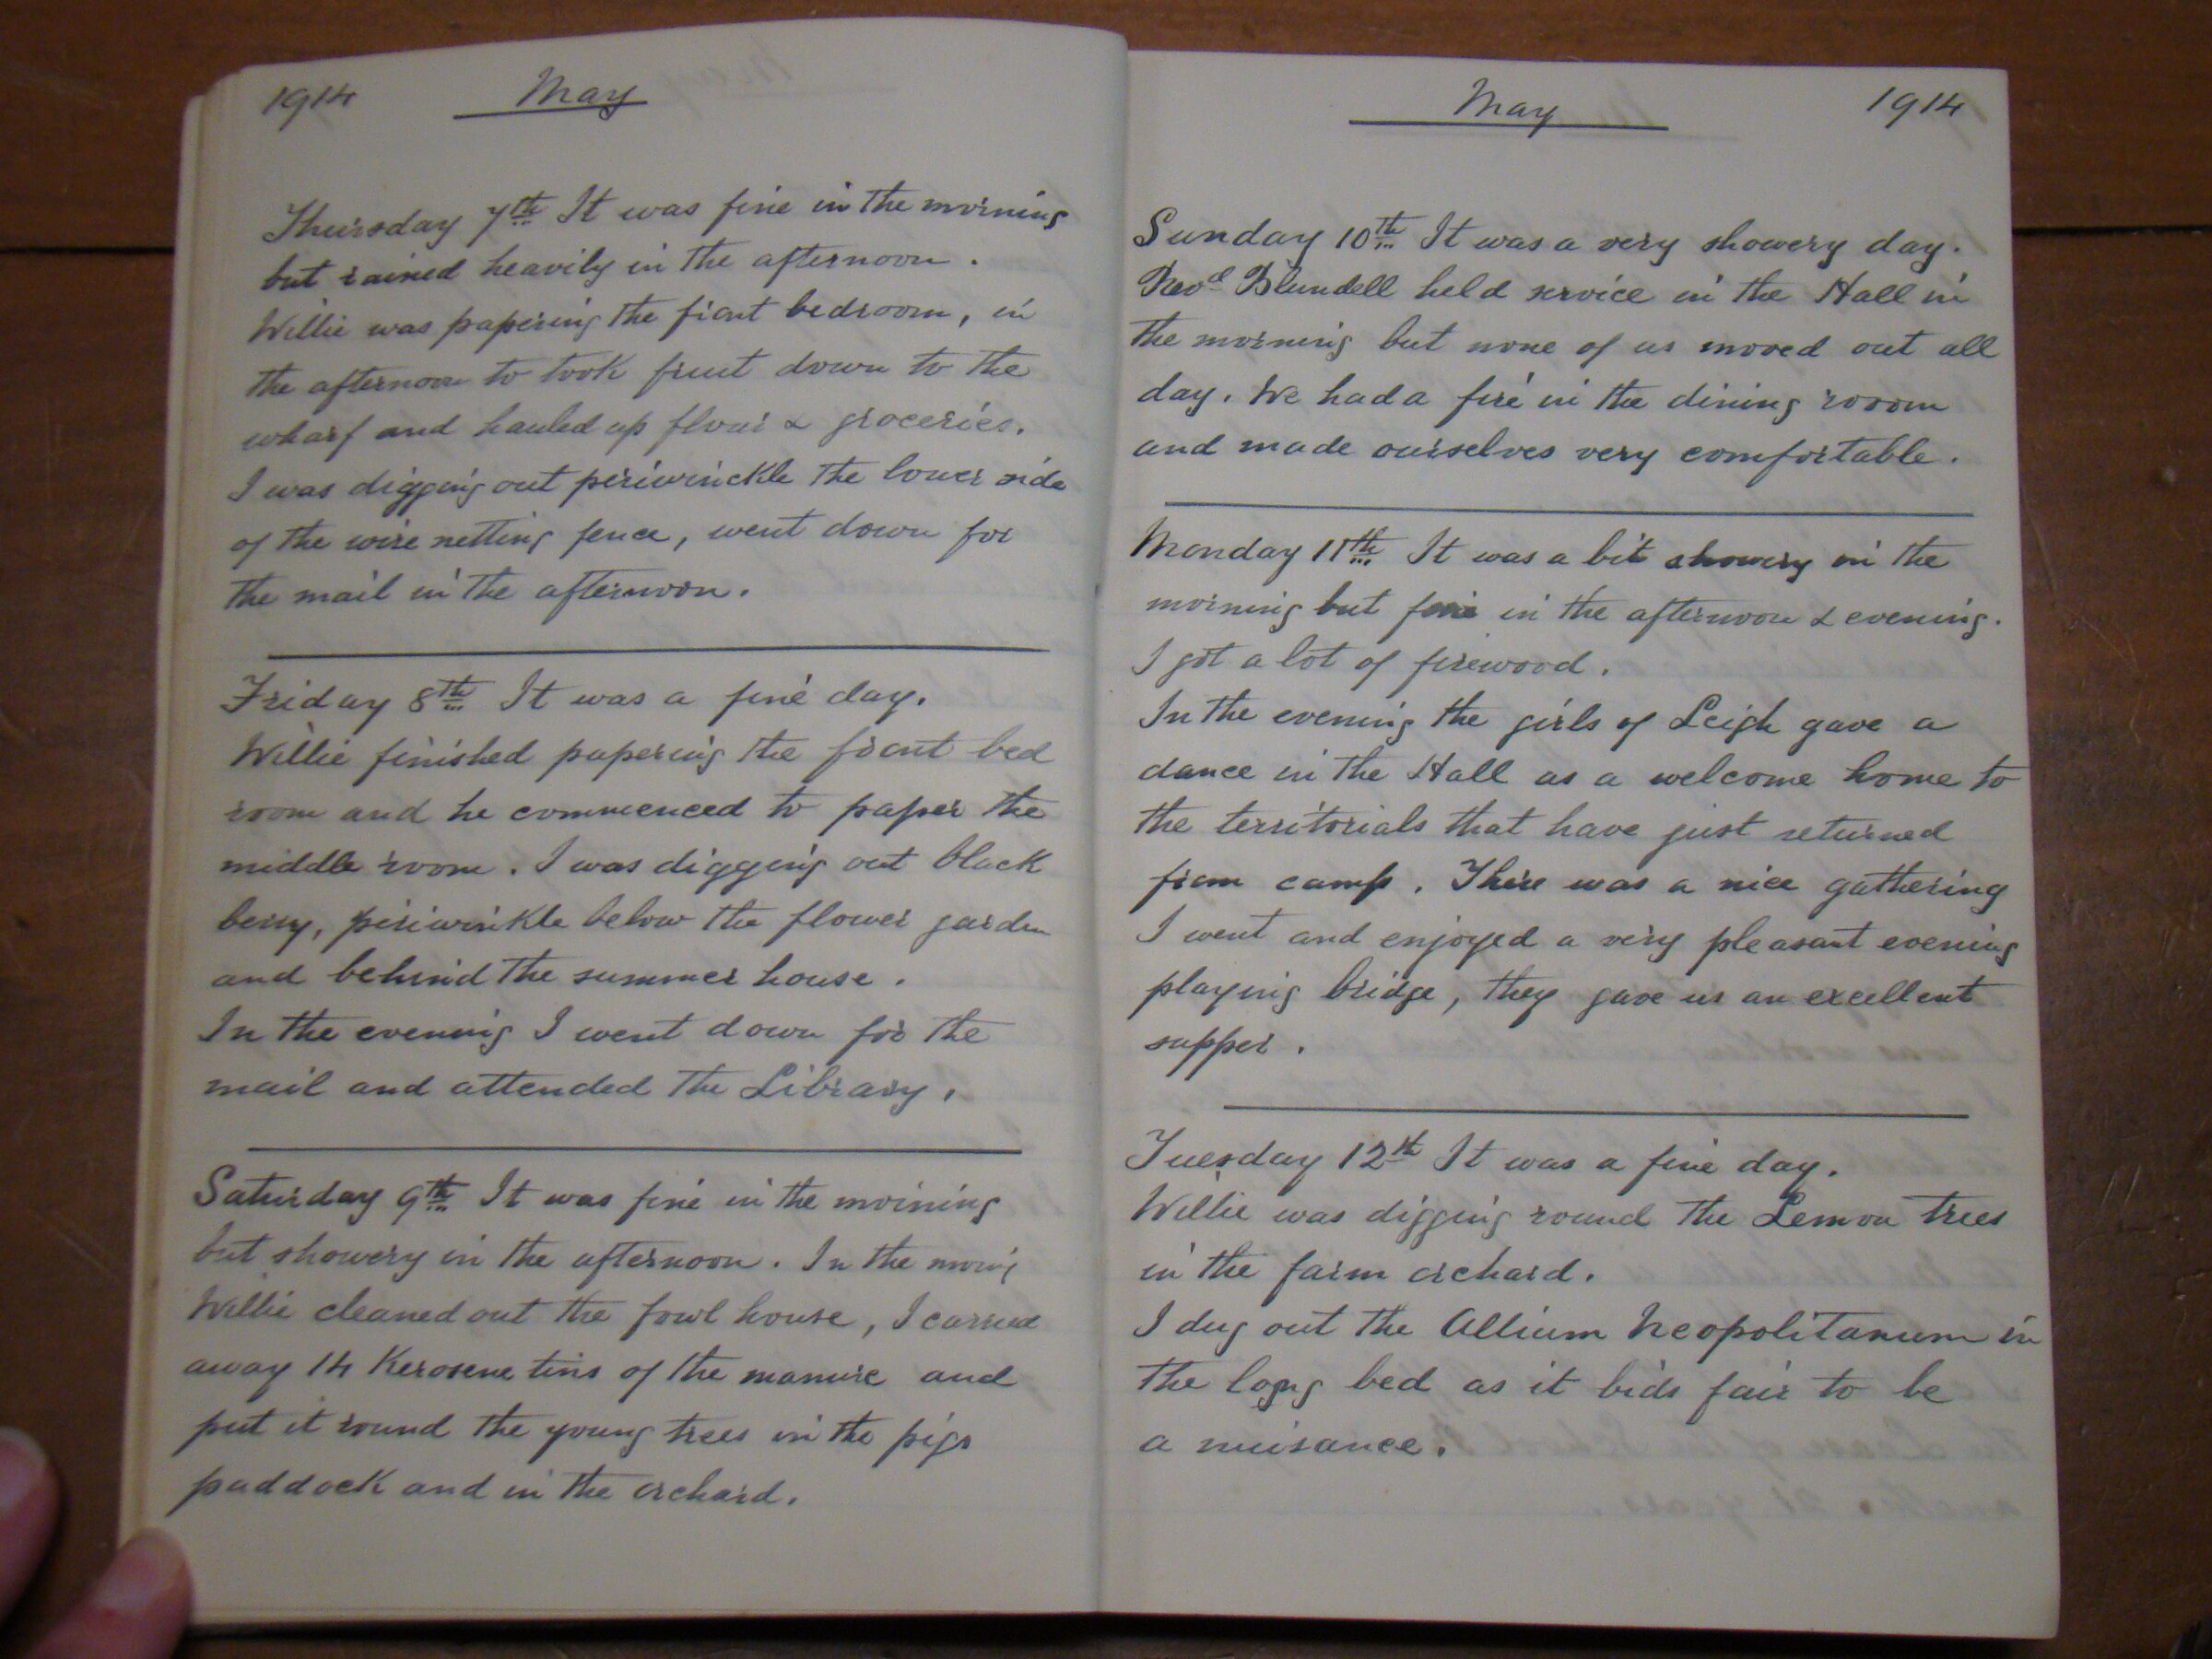 1914 May
Thursday 7th It was fine in the morning
but rained heavily in the afternoon.
Willie was papering the front bedroom, in
the afternoon to took fruit down to the
wharf and hauled up flour & groceries.
I was digging out periwinckle the lower side
of the wire netting fence, went down for
the mail in the afternoon.
Friday 8th It was a fine day.
Willie finished papering the front bed
room and he commenced to paper the
middle room. I was digging out black
berry, periwinkle below the flower garden
and behind the summer house.
In the evening I went down for the
mail and attended the Library.
Saturday 9th It was fine in the morning
but showery in the afternoon. In the morng
Willie cleaned out the fowl house, I carried
away 14 Kerosene tins of the manure and
put it round the young trees in the pigs
paddock and in the orchard.
May 1914
Sunday 10th It was a very showery day.
Revd Blundell held service in the Hall in
the morning but none of us moved out all
day. We had a fire in the dining rooom
and made ourselves very comfortable.
Monday 11th It was a bit showery in the
morning but fine in the afternoon & evening.
I got a lot of firewood.
In the evening the girls of Leigh gave a
dance in the Hall as a welcome home to
the territorials that have just returned
from camp. There was a nice gathering
I went and enjoyed a very pleasant evening
playing bridge, they gave us an excellent
supper.
Tuesday 12th It was a fine day.
Willie was digging round the Lemon trees
in the farm orchard.
I dug out the Allium Neopolitanum in
the long bed as it bids fair to be
a nuisance.